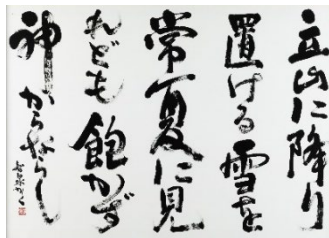 立山に降り
置ける雪を
常夏に見
れども飽かず
神からならし